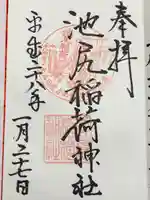 奉拝
池尻稲荷神社
平成二十八年
一月二十七日